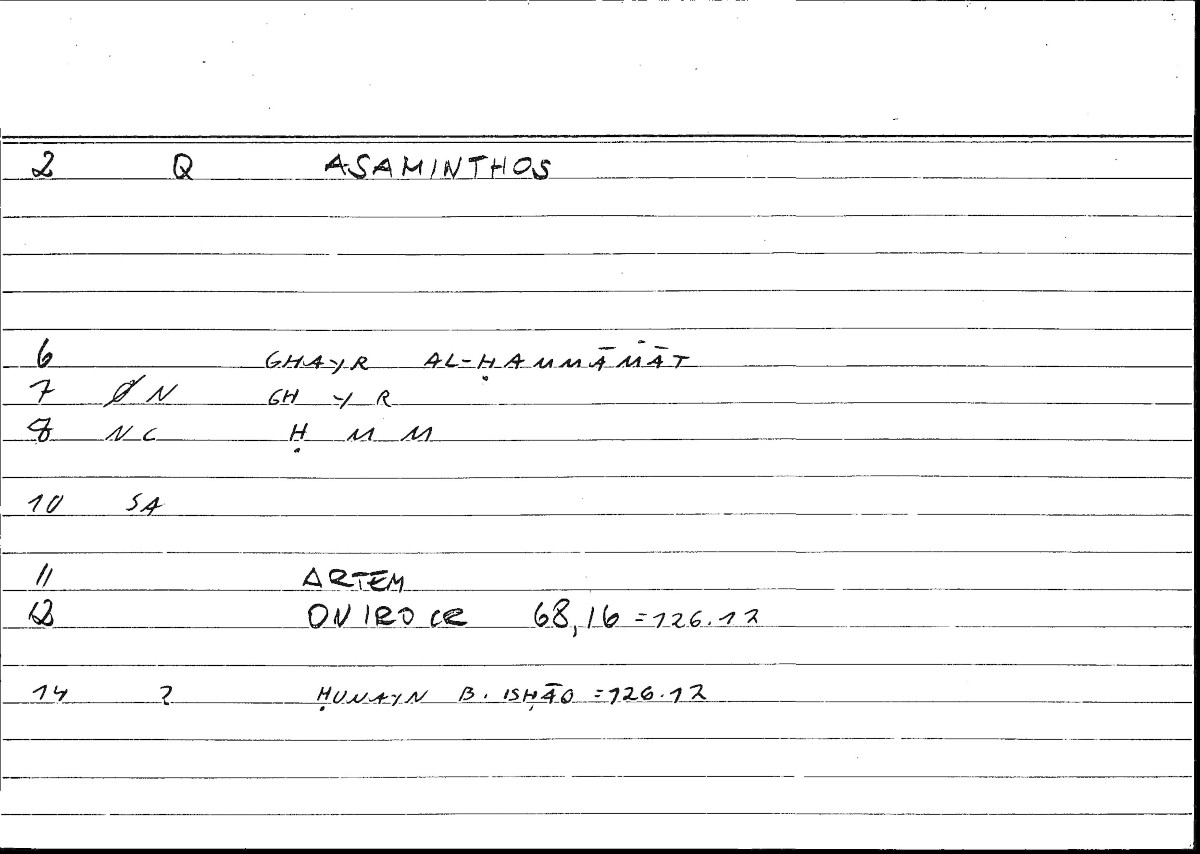 2 Q ASAMINTHOS
6 GHAYR AL-ḤAMMĀMĀT
7 ØN GH Y R
8 NC Ḥ M M
10 SA
11 ARTEM
12 ONIROCR 68,16 = 126.12
14 2 ḤUNAYN B. ISḤĀQ = 126.12